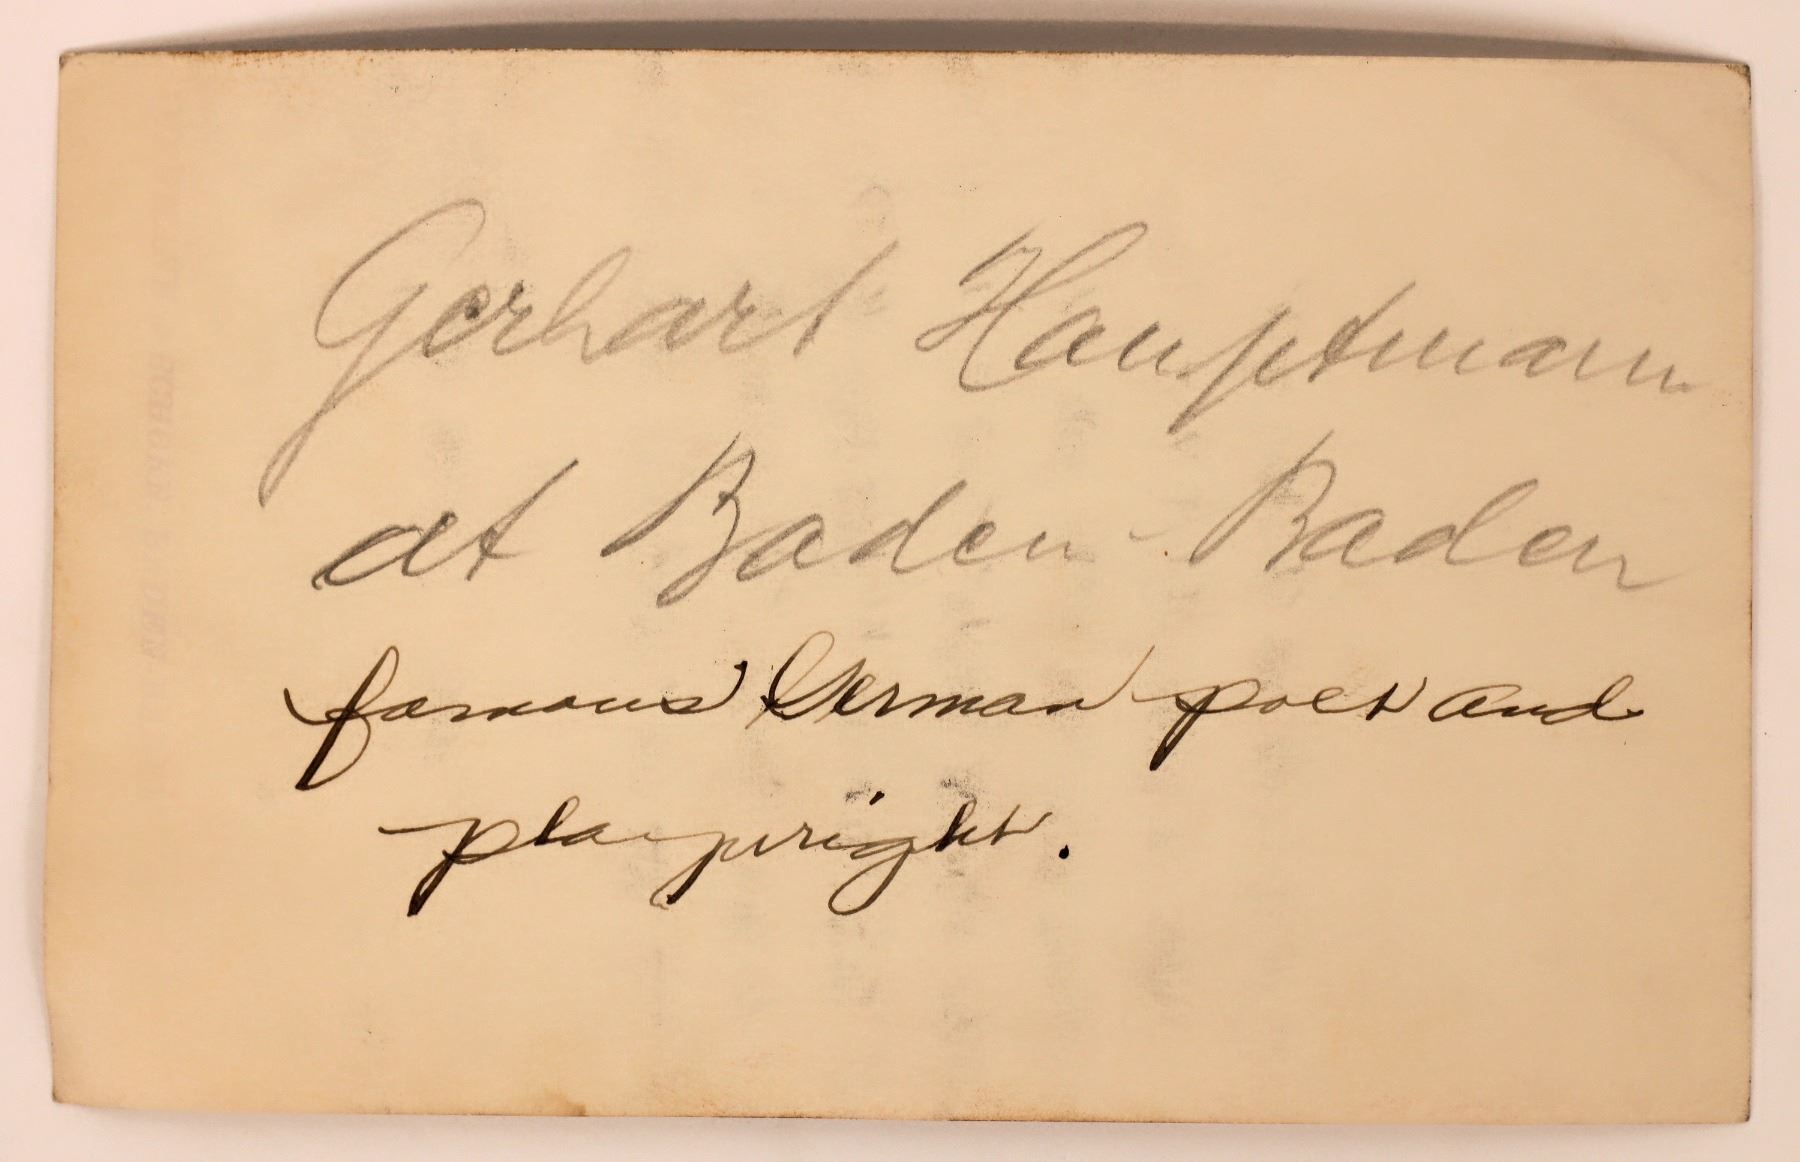 Gerhart Hauptmann
at Baden-Baden
famous German poet and
playwright.